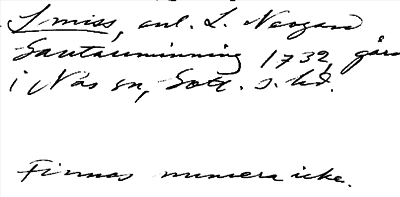 Smiss, enl. L. Neogard
Gautauminning 1732, gård
i Näs sn, Gotl. s. hd.
Finnas numera icke.